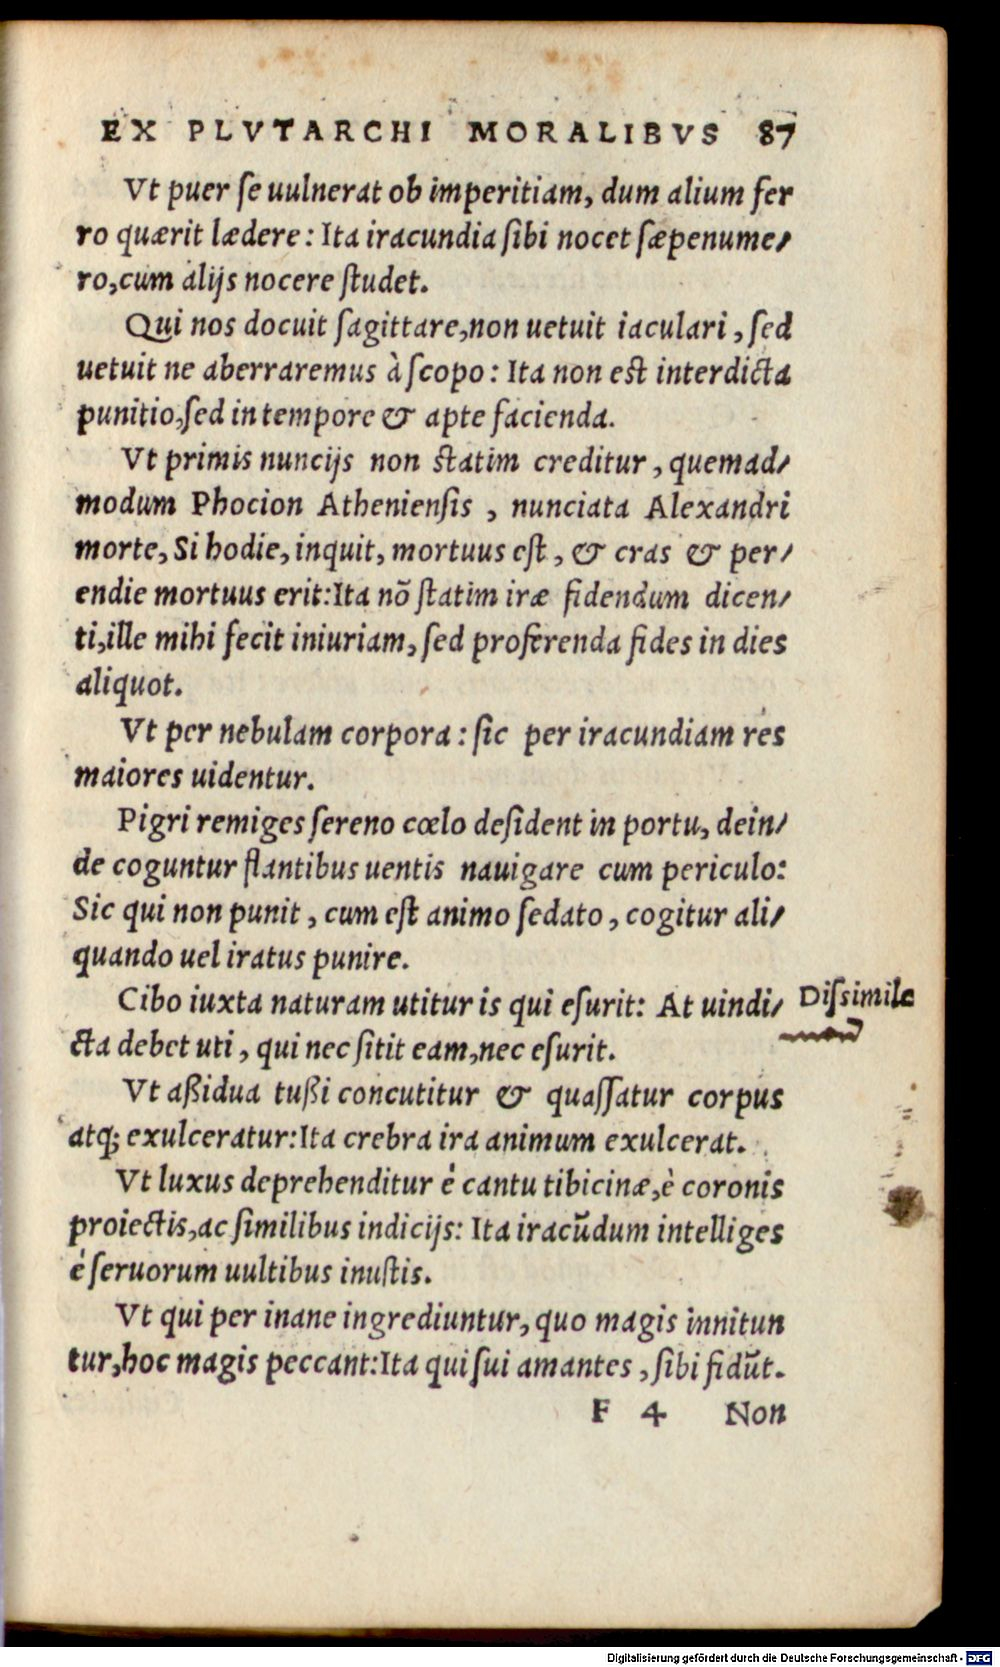 EX PLVTARCHI MORALIBVS 87
Vt puer se uulnerat ob imperitiam, dum alium fer
ro quærit lædere: Ita iracundia sibi nocet sæpenume-
ro, cum alijs nocere studet.
Qui nos docuit sagittare, non uetuit iaculari, sed
uetuit ne aberraremus à scopo: Ita non est interdicta
punitio, sed in tempore & apte facienda.
Vt primis nuncijs non statim creditur, quemad-
modum Phocion Atheniensis, nunciata Alexandri
morte, Si hodie, inquit, mortuus est, & cras & per-
endie mortuus erit: Ita nõ statim iræ fidendum dicen-
ti, ille mihi fecit iniuriam, sed proferenda fides in dies
aliquot.
Vt per nebulam corpora: sic per iracundiam res
maiores uidentur.
Pigri remiges sereno cœlo desident in portu, dein-
de coguntur flantibus uentis nauigare cum periculo:
Sic qui non punit, cum est animo sedato, cogitur ali-
quando uel iratus punire.
Cibo iuxta naturam utitur is qui esurit: At uindi- Dissimile
cta debet uti, qui nec sitit eam, nec esurit.
Vt aßidua tußi concutitur & quassatur corpus
atq; exulceratur: Ita crebra ira animum exulcerat.
Vt luxus deprehenditur é cantu tibicinæ, è coronis
proiectis, ac similibus indicijs: Ita iracũdum intelliges
é seruorum uultibus inustis.
Vt qui per inane ingrediuntur, quo magis innitun
tur, hoc magis peccant: Ita qui sui amantes, sibi fidũt.
F 4 Non
Digitalisierung gefördert durch die Deutsche Forschungsgemeinschaft - DFG